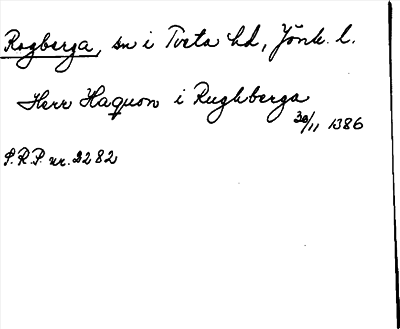 Rogberga, sn i Tveta hd, Jönk. l.
Herr Haquon i Rughberga
30/11 1386
S.R.P. nr. 2282